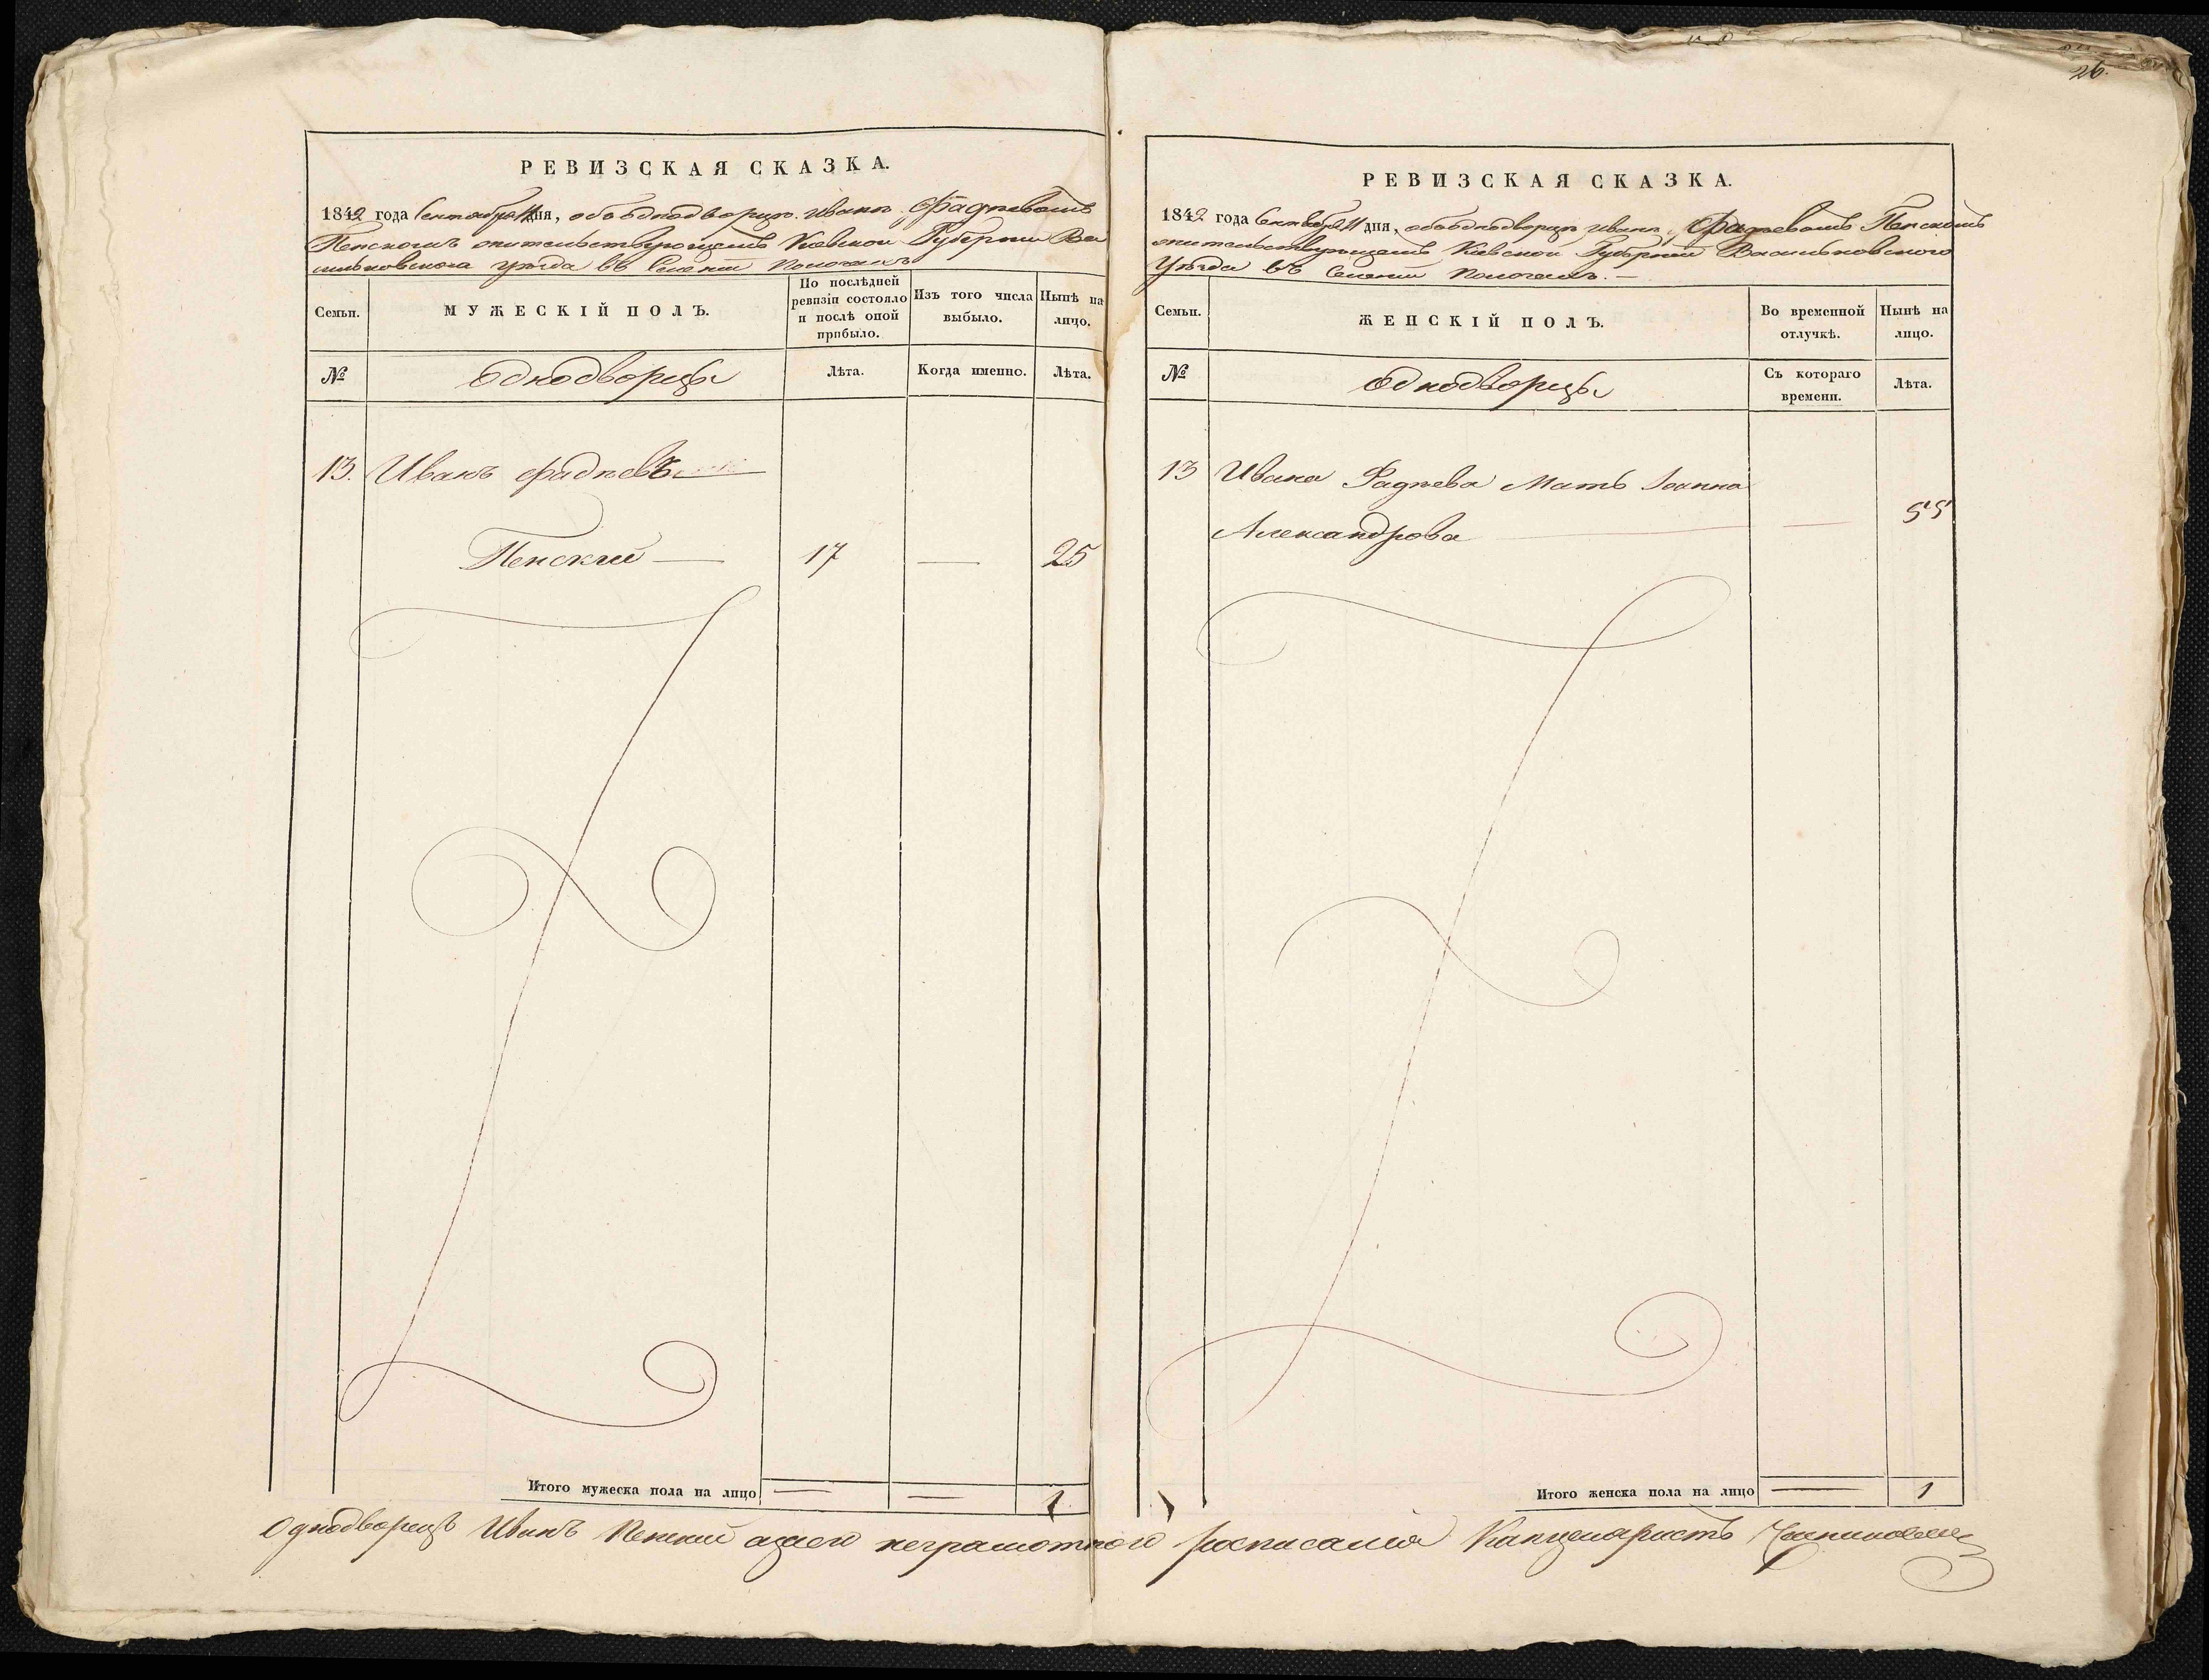 26.
РЕВИЗСКАЯ СКАЗКА.
1842 года Сентября 11 дня, объ однодворцѣ Иванѣ Фадѣевомъ
Пенскомъ жительствующемъ Кіевской Губерніи Ва
сильковскаго уѣзда въ Селеніи
Семьи.
МУЖЕСКІЙ ПОЛЪ.
По послѣдней
ревизіи состояло
и послѣ оной
прибыло.
Изъ того числа
выбыло.
Нынѣ на
лицо.
№
Однодворцы
Лѣта.
Когда именно.
Лѣта.
13. Иванъ Фадѣевъ —
Пенский — 17 — 25
Итого мужеска пола на лицо — — 1
РЕВИЗСКАЯ СКАЗКА.
1842 года Сентября 11 дня, объ однодворцѣ Иванѣ Фадѣевомъ Пенскомъ
жительствующемъ Кіевской Губерніи Васильковскаго
Уѣзда въ Селеніи
Семьи.
ЖЕНСКІЙ ПОЛЪ.
Во временной
отлучкѣ.
Нынѣ на
лицо.
№
Однодворцы
Съ котораго
времени.
Лѣта.
13 Ивана Фадѣева Мать Іоанна
Александрова — — 55
Итого женска пола на лицо — 1
Однодворецъ Иванъ Пенский а за него неграмотного росписался Канцеляристъ